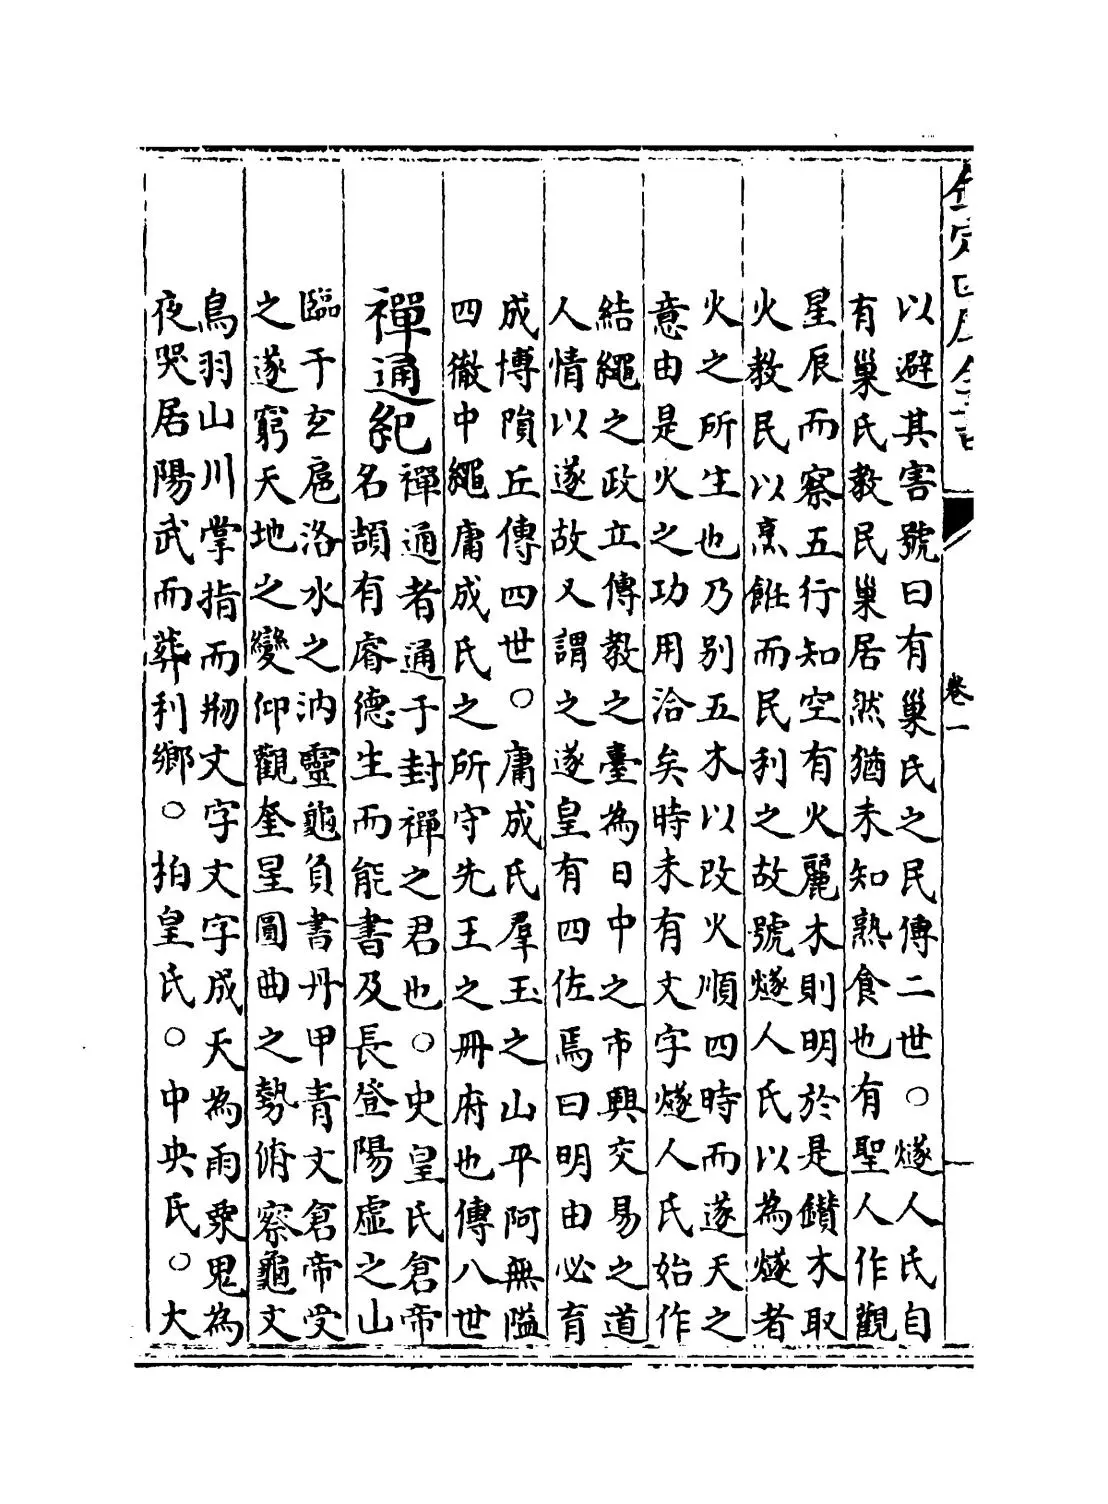 欽定四庫全書
卷一
以避其害號曰有巢氏之民傳二世○燧人氏自
有巢氏教民巢居然猶未知熟食也有聖人作觀
星辰而察五行知空有火麗木則明於是鑚木取
火教民以烹飪而民利之故號燧人氏以為燧者
火之所生也乃別五木以改火順四時而遂天之
意由是火之功用洽矣時未有文字燧人氏始作
結繩之政立傳教之臺為日中之市興交易之道
人情以遂故又謂之遂皇有四佐焉曰明由必育
成博隕丘傳四世○庸成氏羣玉之山平阿無隘
四徹中繩庸成氏之所守先王之册府也傳八世
禪通紀
禪通者通于封禪之君也○史皇氏倉帝
名頡有睿德生而能書及長登陽虛之山
臨于玄扈洛水之汭靈龜負書丹甲青文倉帝受
之遂窮天地之變仰觀奎星圜曲之勢俯察龜文
鳥羽山川掌指而刱文字文字成天為雨粟鬼為
夜哭居陽武而葬利鄉○柏皇氏○中央氏○大